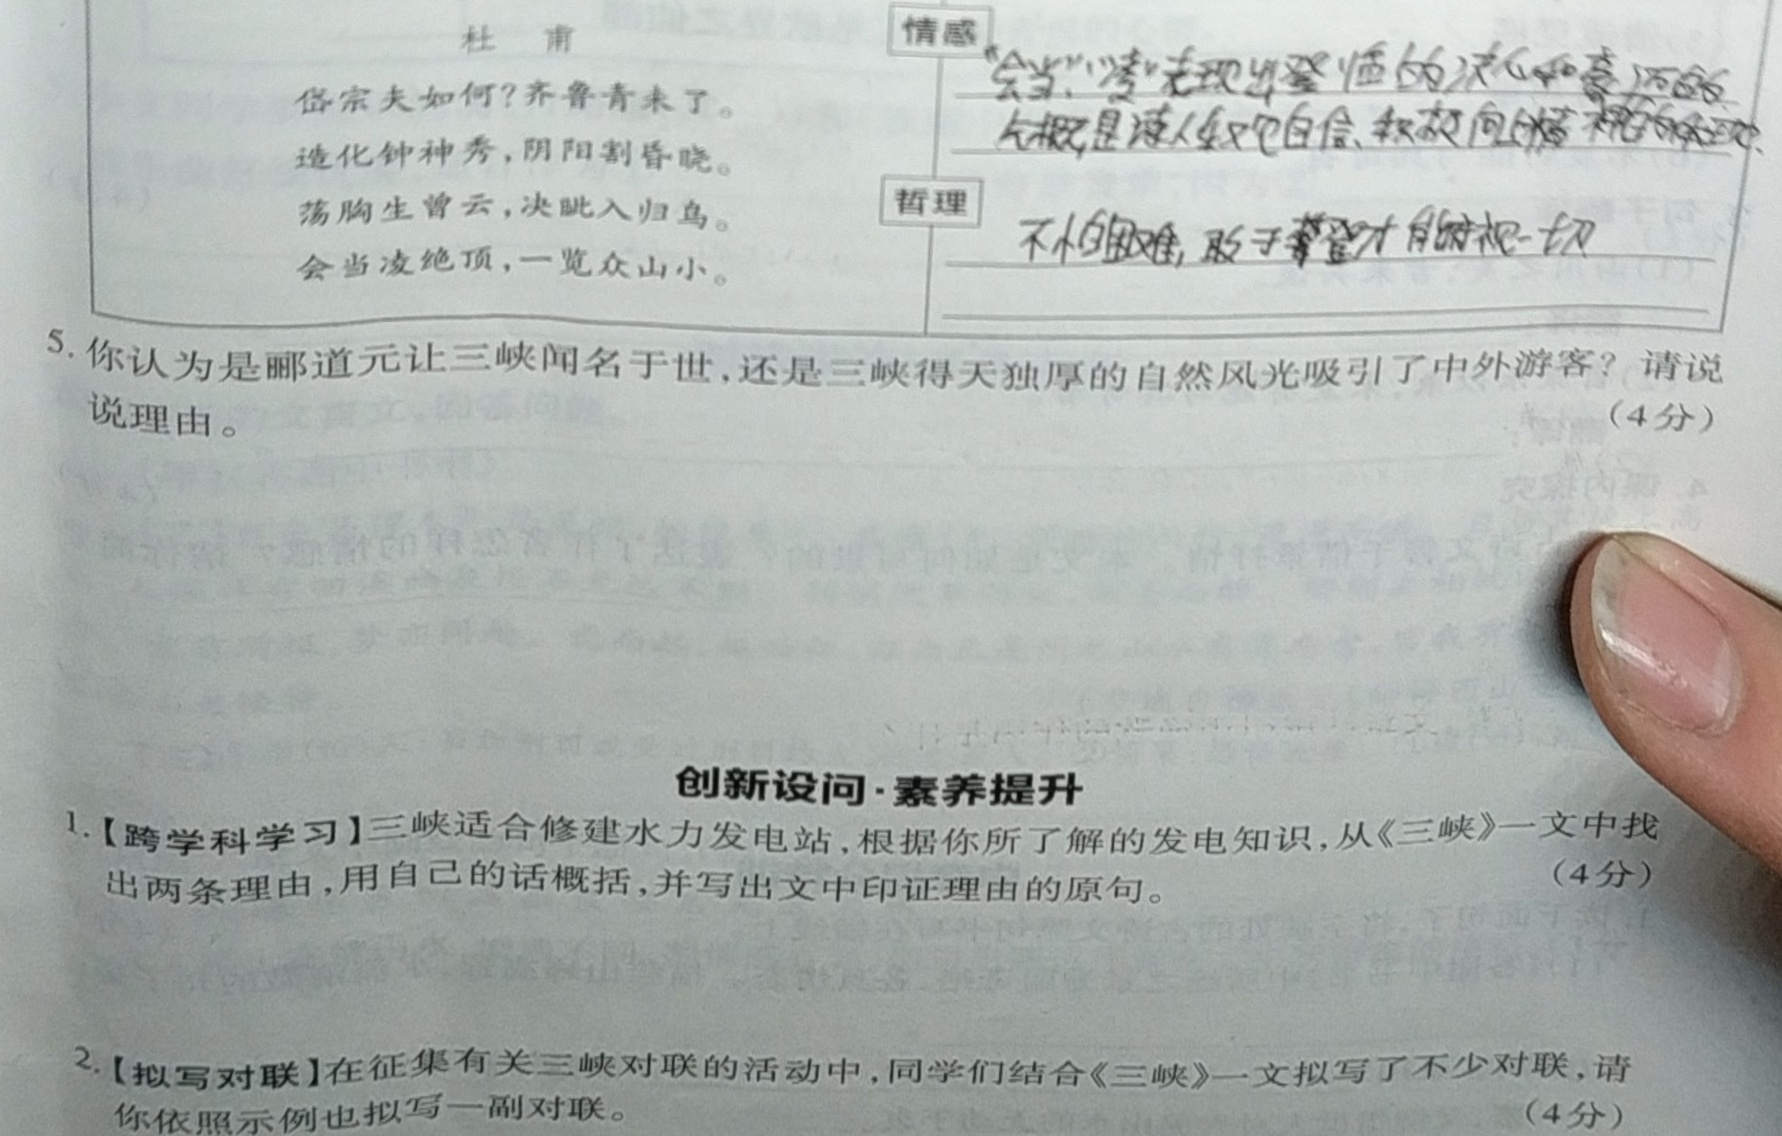 杜 甫
岱宗夫如何?齐鲁青未了。
造化钟神秀,阴阳割昏晓。
荡胸生曾云,决眦入归鸟。
会当凌绝顶,一览众山小。
情感
"会当""凌"表现出登临的决心和豪迈的
气概,是诗人自信、积极向上
哲理
不怕困难,敢于攀登才能俯视一切
5.你认为是郦道元让三峡闻名于世,还是三峡得天独厚的自然风光吸引了中外游客?请说
说理由。 (4分)
创新设问·素养提升
1.【跨学科学习】三峡适合修建水力发电站,根据你所了解的发电知识,从《三峡》一文中找
出两条理由,用自己的话概括,并写出文中印证理由的原句。 (4分)
2.【拟写对联】在征集有关三峡对联的活动中,同学们结合《三峡》一文拟写了不少对联,请
你依照示例也拟写一副对联。 (4分)